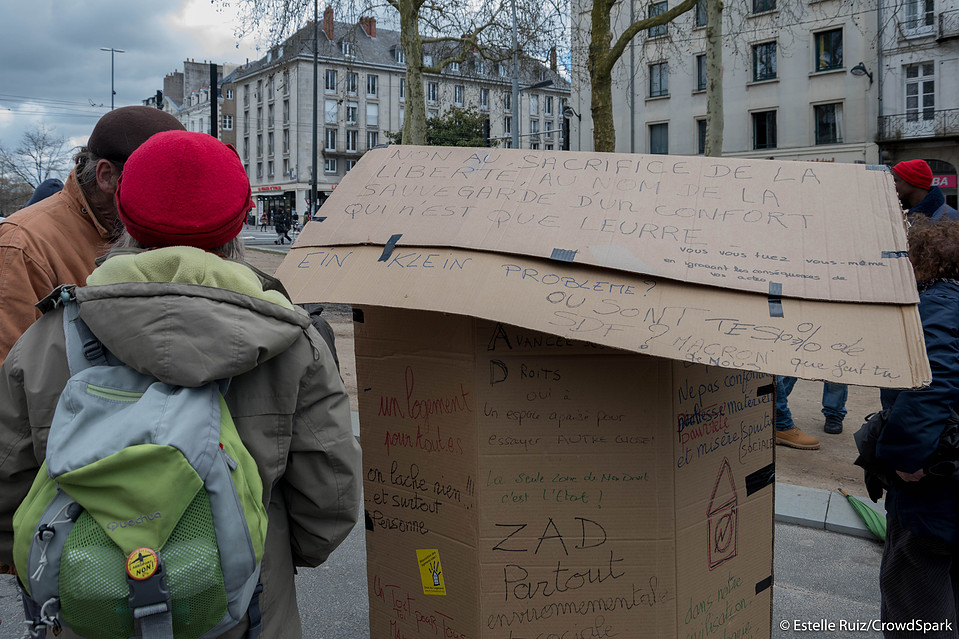 NON AU SACRIFICE DE LA
LIBERTÉ, AU NOM DE LA
SAUVEGARDE D'UN CONFORT
QUI N'EST QUE LEURRE
VOUS VOUS TUEZ VOUS-MÊME
en ignorant les conséquences de
vos actes
EIN KLEIN PROBLEME?
OU SONT TES 10% de
SDF? MACRON que fait tu
de Nous
AVANCÉE
DROITS
OUI à
Un espace apaisé pour
essayer AUTRE CHOSE!
la Seule Zone de Non Droit
c'est l'État!
ZAD
Partout
environnementale
sociale
un logement
pour toutes
on lache rien!!!
...et surtout
Personne
Un Toit
pour Tous
Ne pas confondre
matériel
pauvreté
et misère Spirituelle
SOCIALE
dans notre
Quechua
NON!
BA
© Estelle Ruiz/CrowdSpark